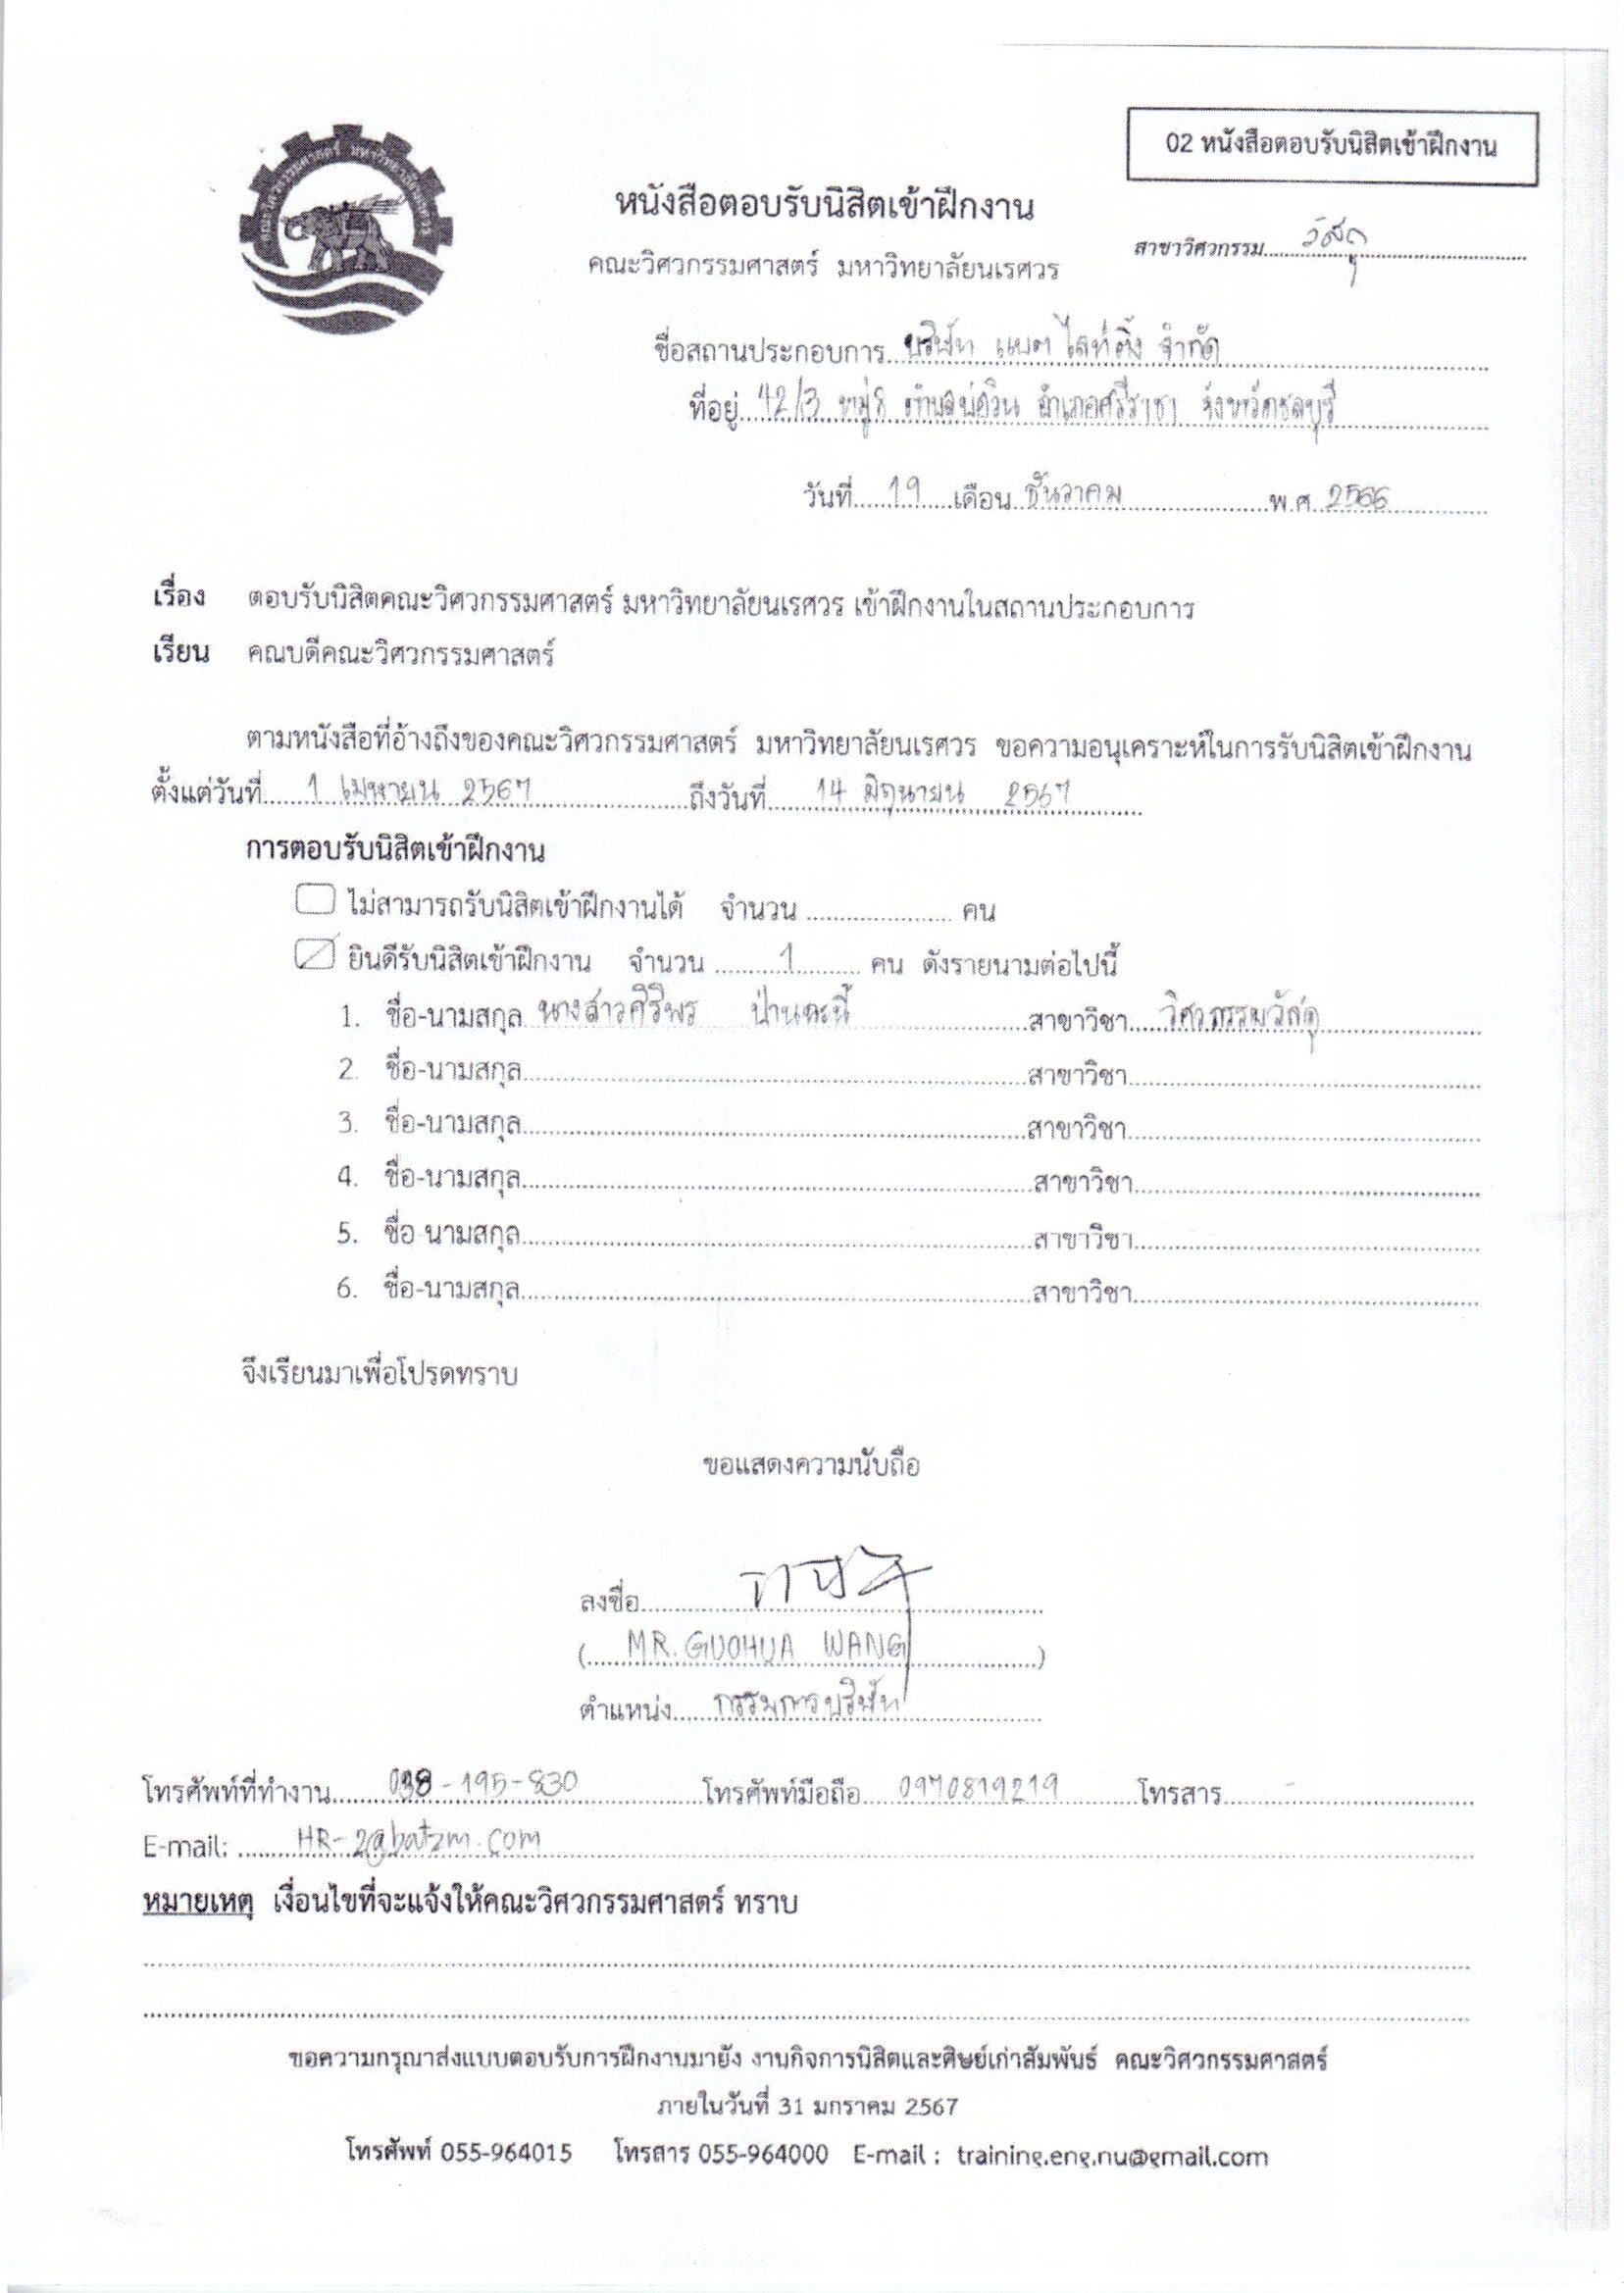 02 หนังสือตอบรับนิสิตเข้าฝึกงาน
คณะวิศวกรรมศาสตร์ มหาวิทยาลัยนเรศวร
หนังสือตอบรับนิสิตเข้าฝึกงาน
สาขาวิศวกรรม วัสดุ
คณะวิศวกรรมศาสตร์ มหาวิทยาลัยนเรศวร
ชื่อสถานประกอบการ บริษัท แบต ไลท์ติ้ง จำกัด
ที่อยู่ 42/3 หมู่8 ตำบลบ่อวิน อำเภอศรีราชา จังหวัดชลบุรี
วันที่ 19 เดือน ธันวาคม พ.ศ. 2566
เรื่อง ตอบรับนิสิตคณะวิศวกรรมศาสตร์ มหาวิทยาลัยนเรศวร เข้าฝึกงานในสถานประกอบการ
เรียน คณบดีคณะวิศวกรรมศาสตร์
ตามหนังสือที่อ้างถึงของคณะวิศวกรรมศาสตร์ มหาวิทยาลัยนเรศวร ขอความอนุเคราะห์ในการรับนิสิตเข้าฝึกงาน
ตั้งแต่วันที่ 1 เมษายน 2567 ถึงวันที่ 14 มิถุนายน 2567
การตอบรับนิสิตเข้าฝึกงาน
ไม่สามารถรับนิสิตเข้าฝึกงานได้ จำนวน ........ คน
ยินดีรับนิสิตเข้าฝึกงาน จำนวน 1 คน ดังรายนามต่อไปนี้
1. ชื่อ-นามสกุล นางสาวศิริพร สาขาวิชา วิศวกรรมวัสดุ
2. ชื่อ-นามสกุล สาขาวิชา
3. ชื่อ-นามสกุล สาขาวิชา
4. ชื่อ-นามสกุล สาขาวิชา
5. ชื่อ-นามสกุล สาขาวิชา
6. ชื่อ-นามสกุล สาขาวิชา
จึงเรียนมาเพื่อโปรดทราบ
ขอแสดงความนับถือ
ลงชื่อ
(MR. GUOHUA WANG)
ตำแหน่ง กรรมการบริษัท
โทรศัพท์ที่ทำงาน 038-195-830 โทรศัพท์มือถือ 0970819219 โทรสาร -
E-mail: HR-2@batzm.com
หมายเหตุ เงื่อนไขที่จะแจ้งให้คณะวิศวกรรมศาสตร์ ทราบ
ขอความกรุณาส่งแบบตอบรับการฝึกงานมายัง งานกิจการนิสิตและศิษย์เก่าสัมพันธ์ คณะวิศวกรรมศาสตร์
ภายในวันที่ 31 มกราคม 2567
โทรศัพท์ 055-964015 โทรสาร 055-964000 E-mail : training.eng.nu@gmail.com